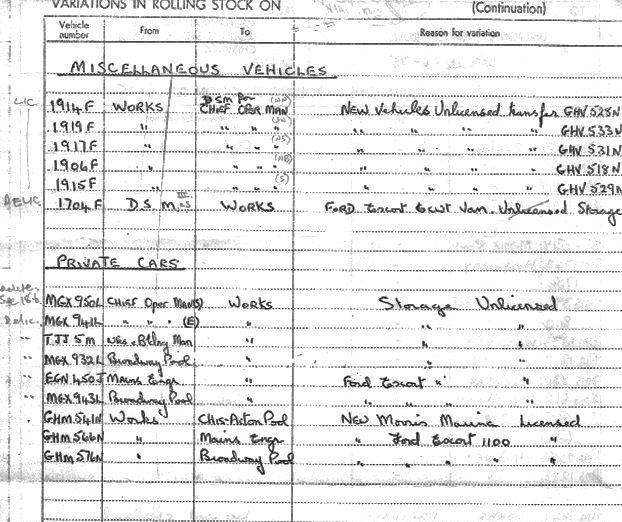 VARIATIONS IN ROLLING STOCK ON (Continuation)
Vehicle number From To Reason for variation
MISCELLANEOUS VEHICLES
LIC 1914F WORKS DSM for CHIEF OPER MAN NEW Vehicles Unlicensed transfer GHV 528N
1919F " " " " " " " " GHV 533N
1917F " " " " " " " GHV 531N
1906F " " " " " " " GHV 518N
1915F " " " " " GHV 529N
DELIC 1704F D.S.M. WORKS FORD Escort 8cwt Van. Unlicensed Storage
PRIVATE CARS
MGX 950L CHIEF Oper Man(S) Works Storage Unlicensed
Delic. MGX 941L " " " (E) " " "
" TJJ 5M Man " " "
" MGX 932L Broadway Pool " " "
" EGN 450J Mains Engr " Ford Escort " "
" MGX 943L Broadway Pool " " " " "
GHM 541N Works CHIS-Acton Pool New Morris Marina Licensed
GHM 566N " Mains Engr " Ford Escort 1100 "
GHM 576N " Broadway Pool " " " " "